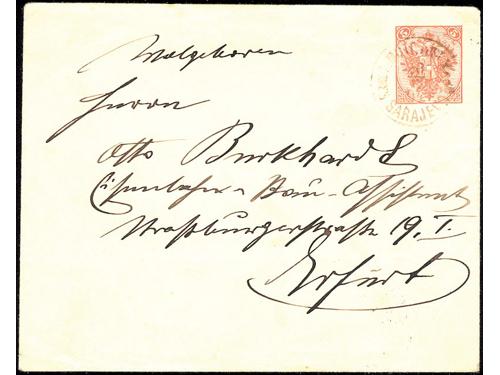 5 5
SARAJEV
Wolgeboren
Herrn
Otto Burkhardt
Eisenbahn-Bau-Assistent
Straßburgerstraße 19. I.
Erfurt